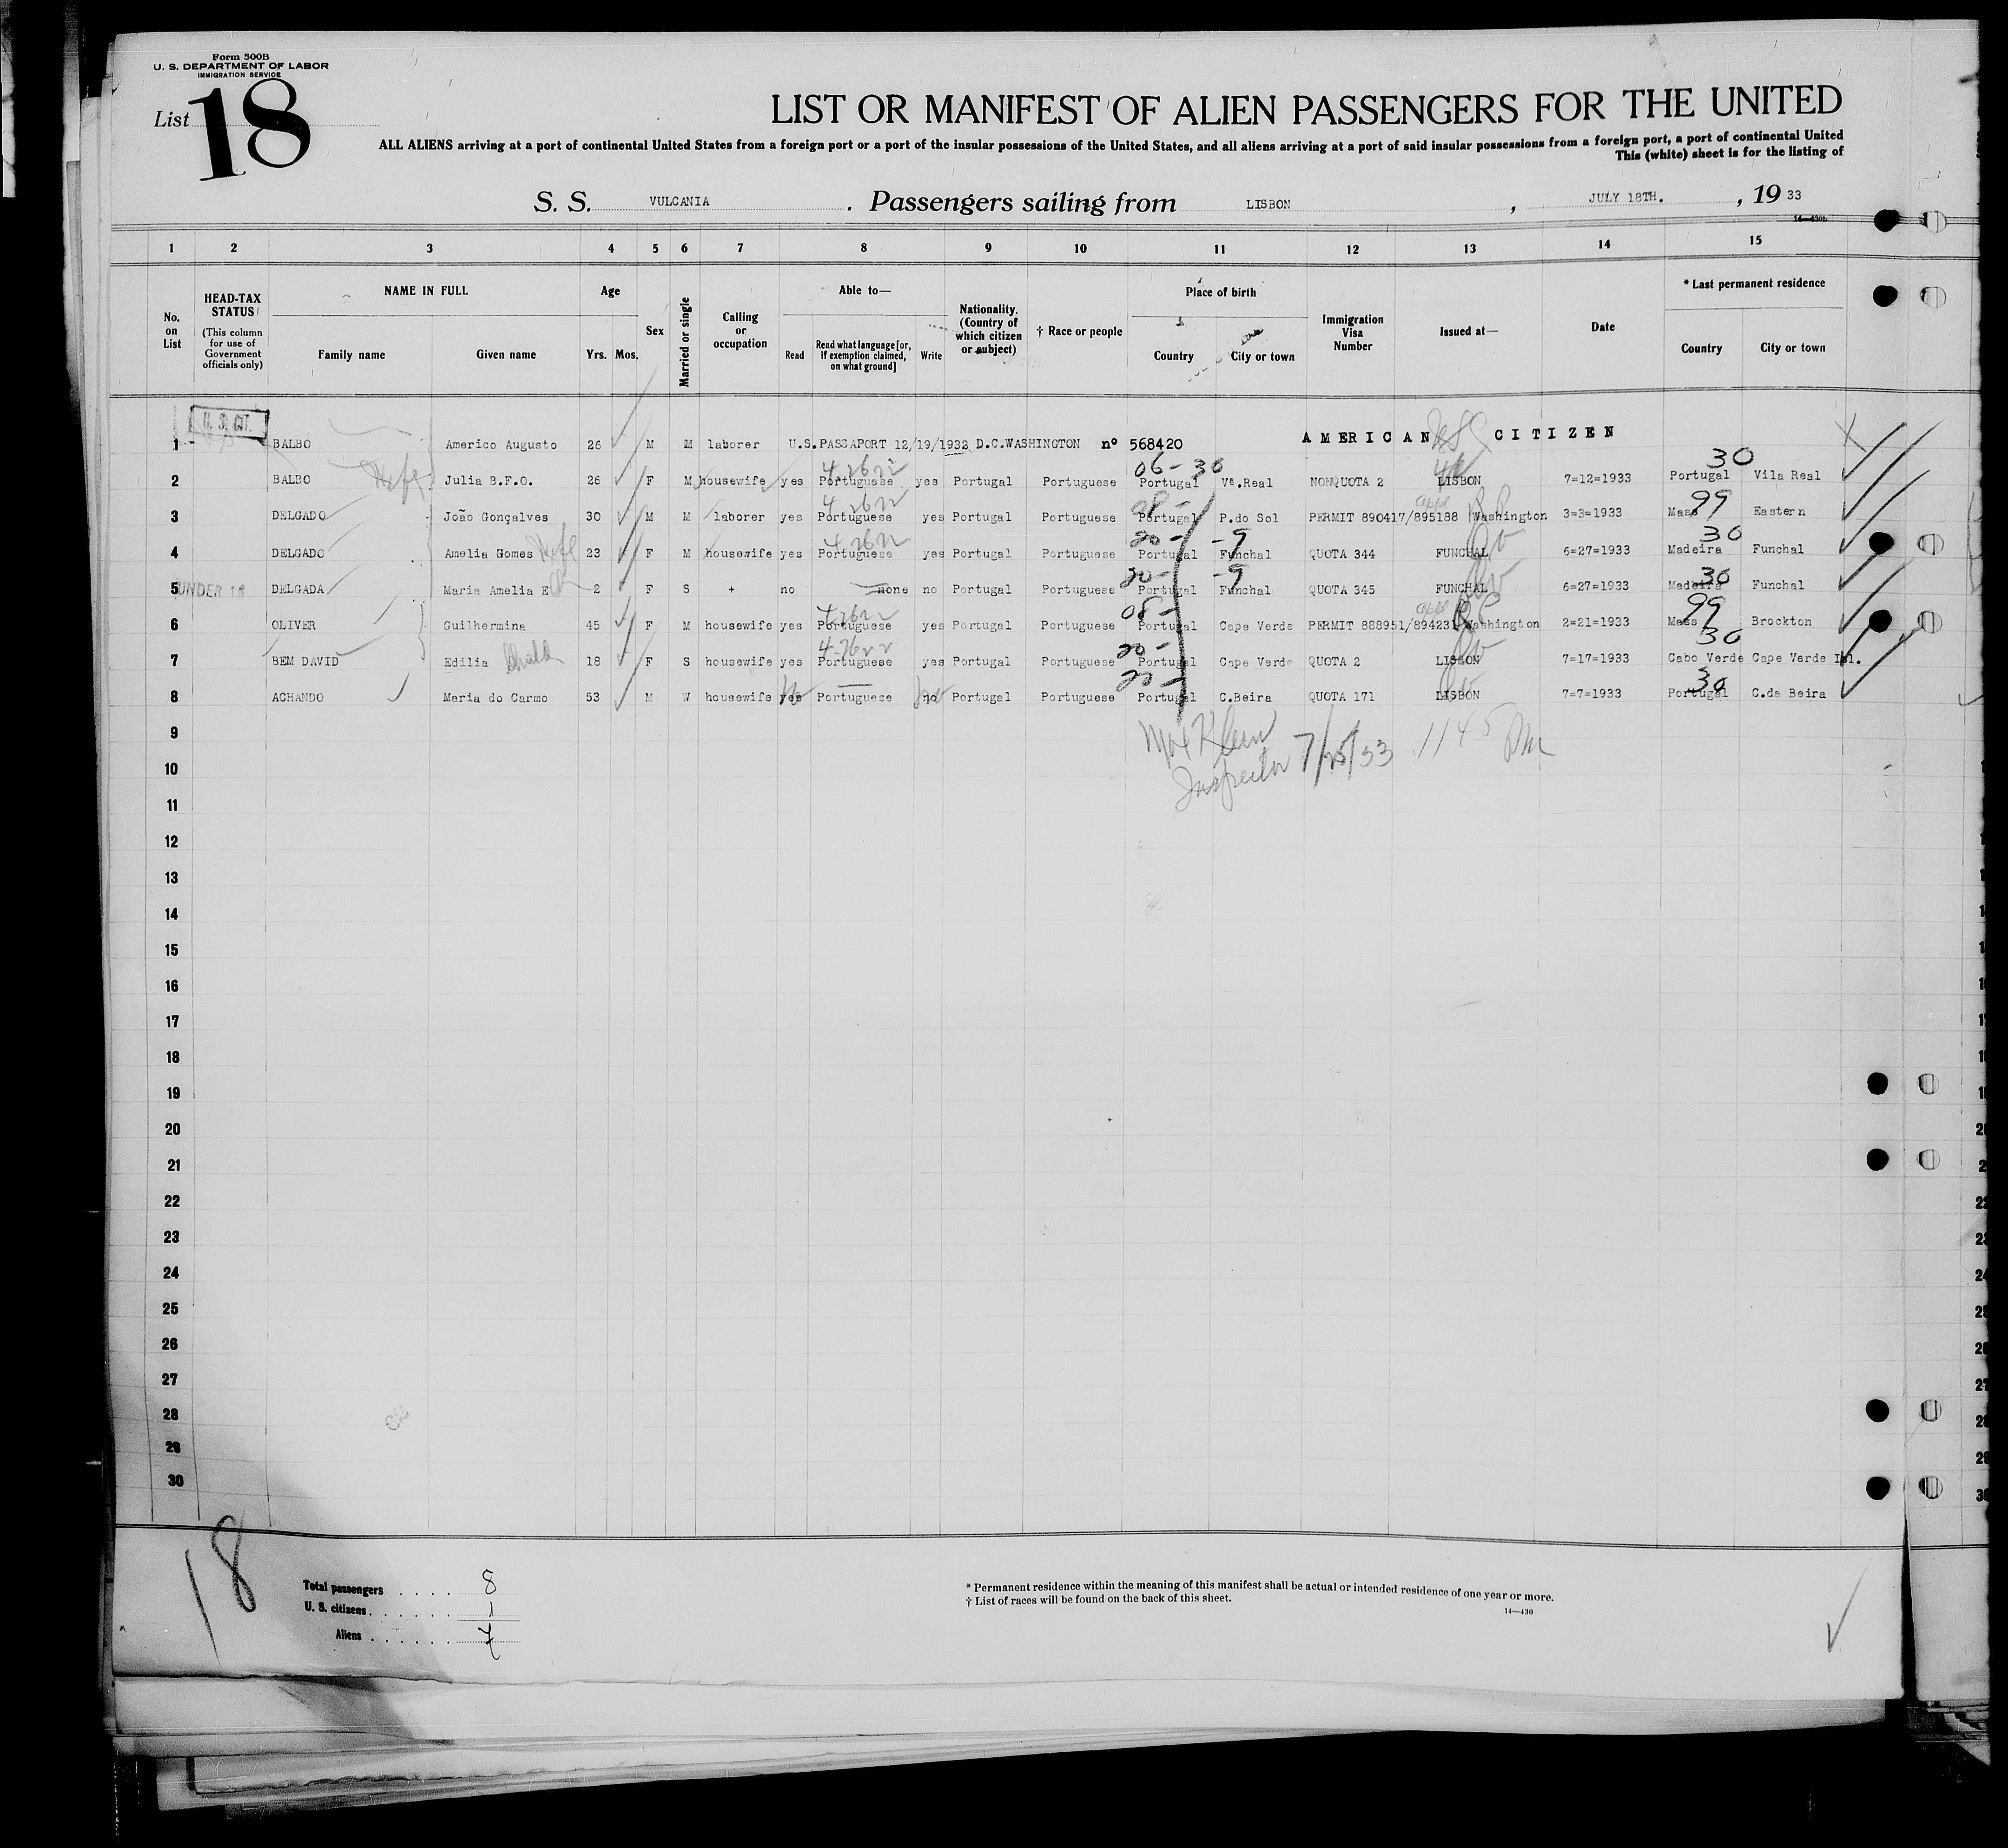 Form 500B
U. S. DEPARTMENT OF LABOR
IMMIGRATION SERVICE
List 18
LIST OR MANIFEST OF ALIEN PASSENGERS FOR THE UNITED
ALL ALIENS arriving at a port of continental United States from a foreign port or a port of the insular possessions of the United States, and all aliens arriving at a port of said insular possessions from a foreign port, a port of continental United
This (white) sheet is for the listing of
S. S. VULCANIA . Passengers sailing from LISBON , JULY 18TH. , 19 33
14—430b
1 2 3 4 5 6 7 8 9 10 11 12 13 14 15
No. on List
HEAD-TAX STATUS (This column for use of Government officials only)
NAME IN FULL Family name Given name
Age Yrs. Mos.
Sex
Married or single
Calling or occupation
Able to— Read Read what language [or, if exemption claimed, on what ground] Write
Nationality. (Country of which citizen or subject)
† Race or people
Place of birth Country City or town
Immigration Visa Number
Issued at—
Date
* Last permanent residence Country City or town
1 U. S. CIT. BALBO Americo Augusto 26 M M laborer U.S.PASSAPORT 12/19/1932 D.C.WASHINGTON nº 568420 AMERICAN CITIZEN
06-30 30
2 BALBO Wife Julia B.F.O. 26 F M housewife yes Portuguese yes Portugal Portuguese Portugal Vª.Real NONQUOTA 2 LISBON 7=12=1933 Portugal Vila Real
3 DELGADO João Gonçalves 30 M M laborer yes Portuguese yes Portugal Portuguese Portugal P.do Sol PERMIT 890417/895188 Washington 3=3=1933 Mass 99 Eastern
20- -9 30
4 DELGADO Amelia Gomes Wife 23 F M housewife yes Portuguese yes Portugal Portuguese Portugal Funchal QUOTA 344 FUNCHAL 6=27=1933 Madeira Funchal
20- -9 30
5 UNDER 16 DELGADA Maria Amelia E 2 F S + no none no Portugal Portuguese Portugal Funchal QUOTA 345 FUNCHAL 6=27=1933 Madeira Funchal
08- 99
6 OLIVER Guilhermina 45 F M housewife yes Portuguese yes Portugal Portuguese Portugal Cape Verde PERMIT 888951/894231 Washington 2=21=1933 Mass Brockton
20- 30
7 BEM DAVID Edilia Child 18 F S housewife yes Portuguese yes Portugal Portuguese Portugal Cape Verde QUOTA 2 LISBON 7=17=1933 Cabo Verde Cape Verde Isl.
20- 30
8 ACHANDO Maria do Carmo 53 M W housewife yes no Portuguese no Portugal Portuguese Portugal C.Beira QUOTA 171 LISBON 7=7=1933 Portugal C.da Beira
9
Max Klein
Inspector 7/25/33 1145 PM
10
11
12
13
14
15
16
17
18
19
20
21
22
23
24
25
26
27
28
29
30
18
Total passengers . . . . 8
U. S. citizens . . . . . . 1
Aliens . . . . . . 7
* Permanent residence within the meaning of this manifest shall be actual or intended residence of one year or more.
† List of races will be found on the back of this sheet.
14—430